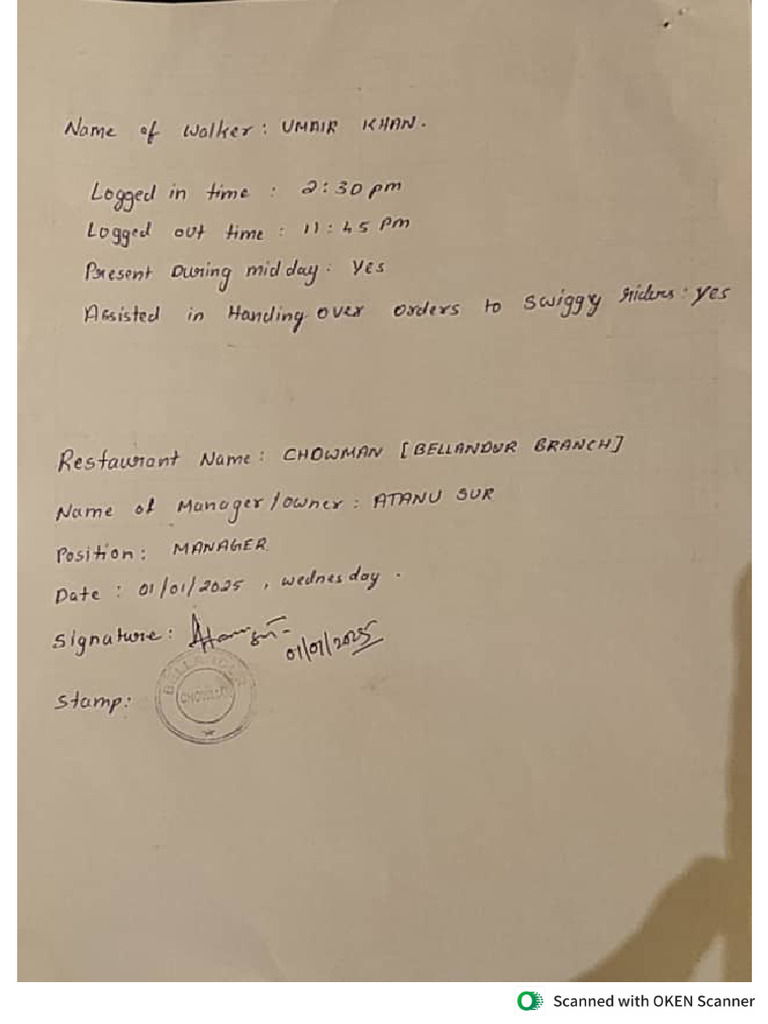 Name of Walker: UMAIR KHAN.
Logged in time : 2:30 pm
Logged out time : 11:45 pm
Present During mid day: Yes
Assisted in Handing over orders to swiggy riders: yes
Restaurant Name: CHOWMAN [BELLANDUR BRANCH]
Name of Manager/owner: ATANU SUR
Position: MANAGER
Date : 01/01/2025, wednesday.
Signature:
01/01/2025
Stamp:
BELLANDUR
CHOWMAN
Scanned with OKEN Scanner